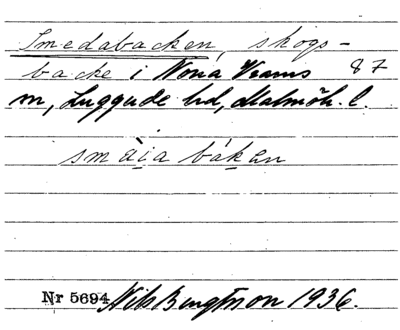 Smedabacken, skogs-
backe i Norra Vrams 87
sn, Luggude hd, Malmöh. l.
smàia bákan
Nr 5694 Nils Bengtsson 1936.